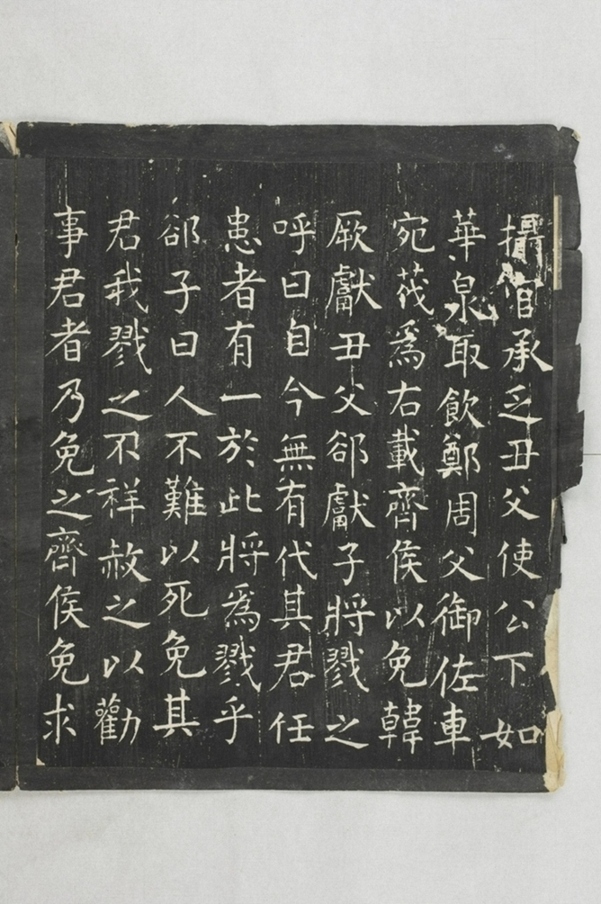 攝官承乏丑父使公下如
華泉取飲鄭周父御佐車
宛茷爲右載齊侯以免韓
厥獻丑父郤獻子將戮之
呼曰自今無有代其君任
患者有一於此將爲戮乎
郤子曰人不難以死免其
君我戮之不祥赦之以勸
事君者乃免之齊侯免求